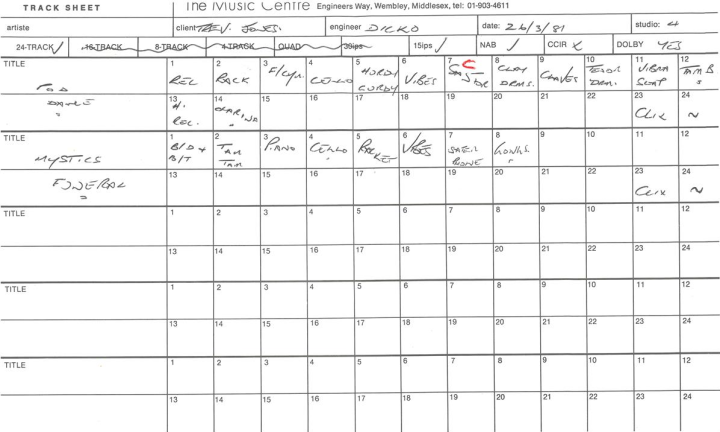 TRACK SHEET The Music Centre Engineers Way, Wembley, Middlesex, tel: 01-903-4611
artiste client TREV. JONES. engineer DICKO date: 26/3/81 studio: 4
24-TRACK ✓ 16-TRACK 8-TRACK 4-TRACK QUAD 30ips 15ips ✓ NAB ✓ CCIR X DOLBY YES
TITLE 1 2 3 4 5 6 7 8 9 10 11 12
POD REC RACK F/Cym. CELLO HURDY GURDY VIBES C CLAY DRMS. CLAVES TENOR DRM. VIBRA SLAP TAMB
DANCE
13 14 15 16 17 18 19 20 21 22 23 24
H. REC. OCARINA CLIX ~
TITLE 1 2 3 4 5 6 7 8 9 10 11 12
MYSTICS B/D + B/T TAM TAM PIANO CELLO RACKET VIBES GONGS.
13 14 15 16 17 18 19 20 21 22 23 24
FUNERAL CLIX ~
TITLE 1 2 3 4 5 6 7 8 9 10 11 12
13 14 15 16 17 18 19 20 21 22 23 24
TITLE 1 2 3 4 5 6 7 8 9 10 11 12
13 14 15 16 17 18 19 20 21 22 23 24
TITLE 1 2 3 4 5 6 7 8 9 10 11 12
13 14 15 16 17 18 19 20 21 22 23 24